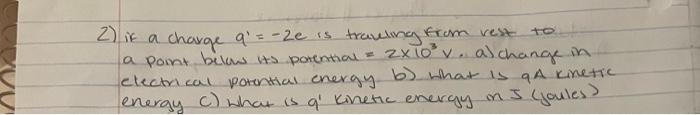 2) if a charge q' = -2e is traveling from rest to
a point below its potential = 2x10³ v. a) change in
electrical potential energy b) what is qA kinetic
energy c) what is q' kinetic energy in J (joules)